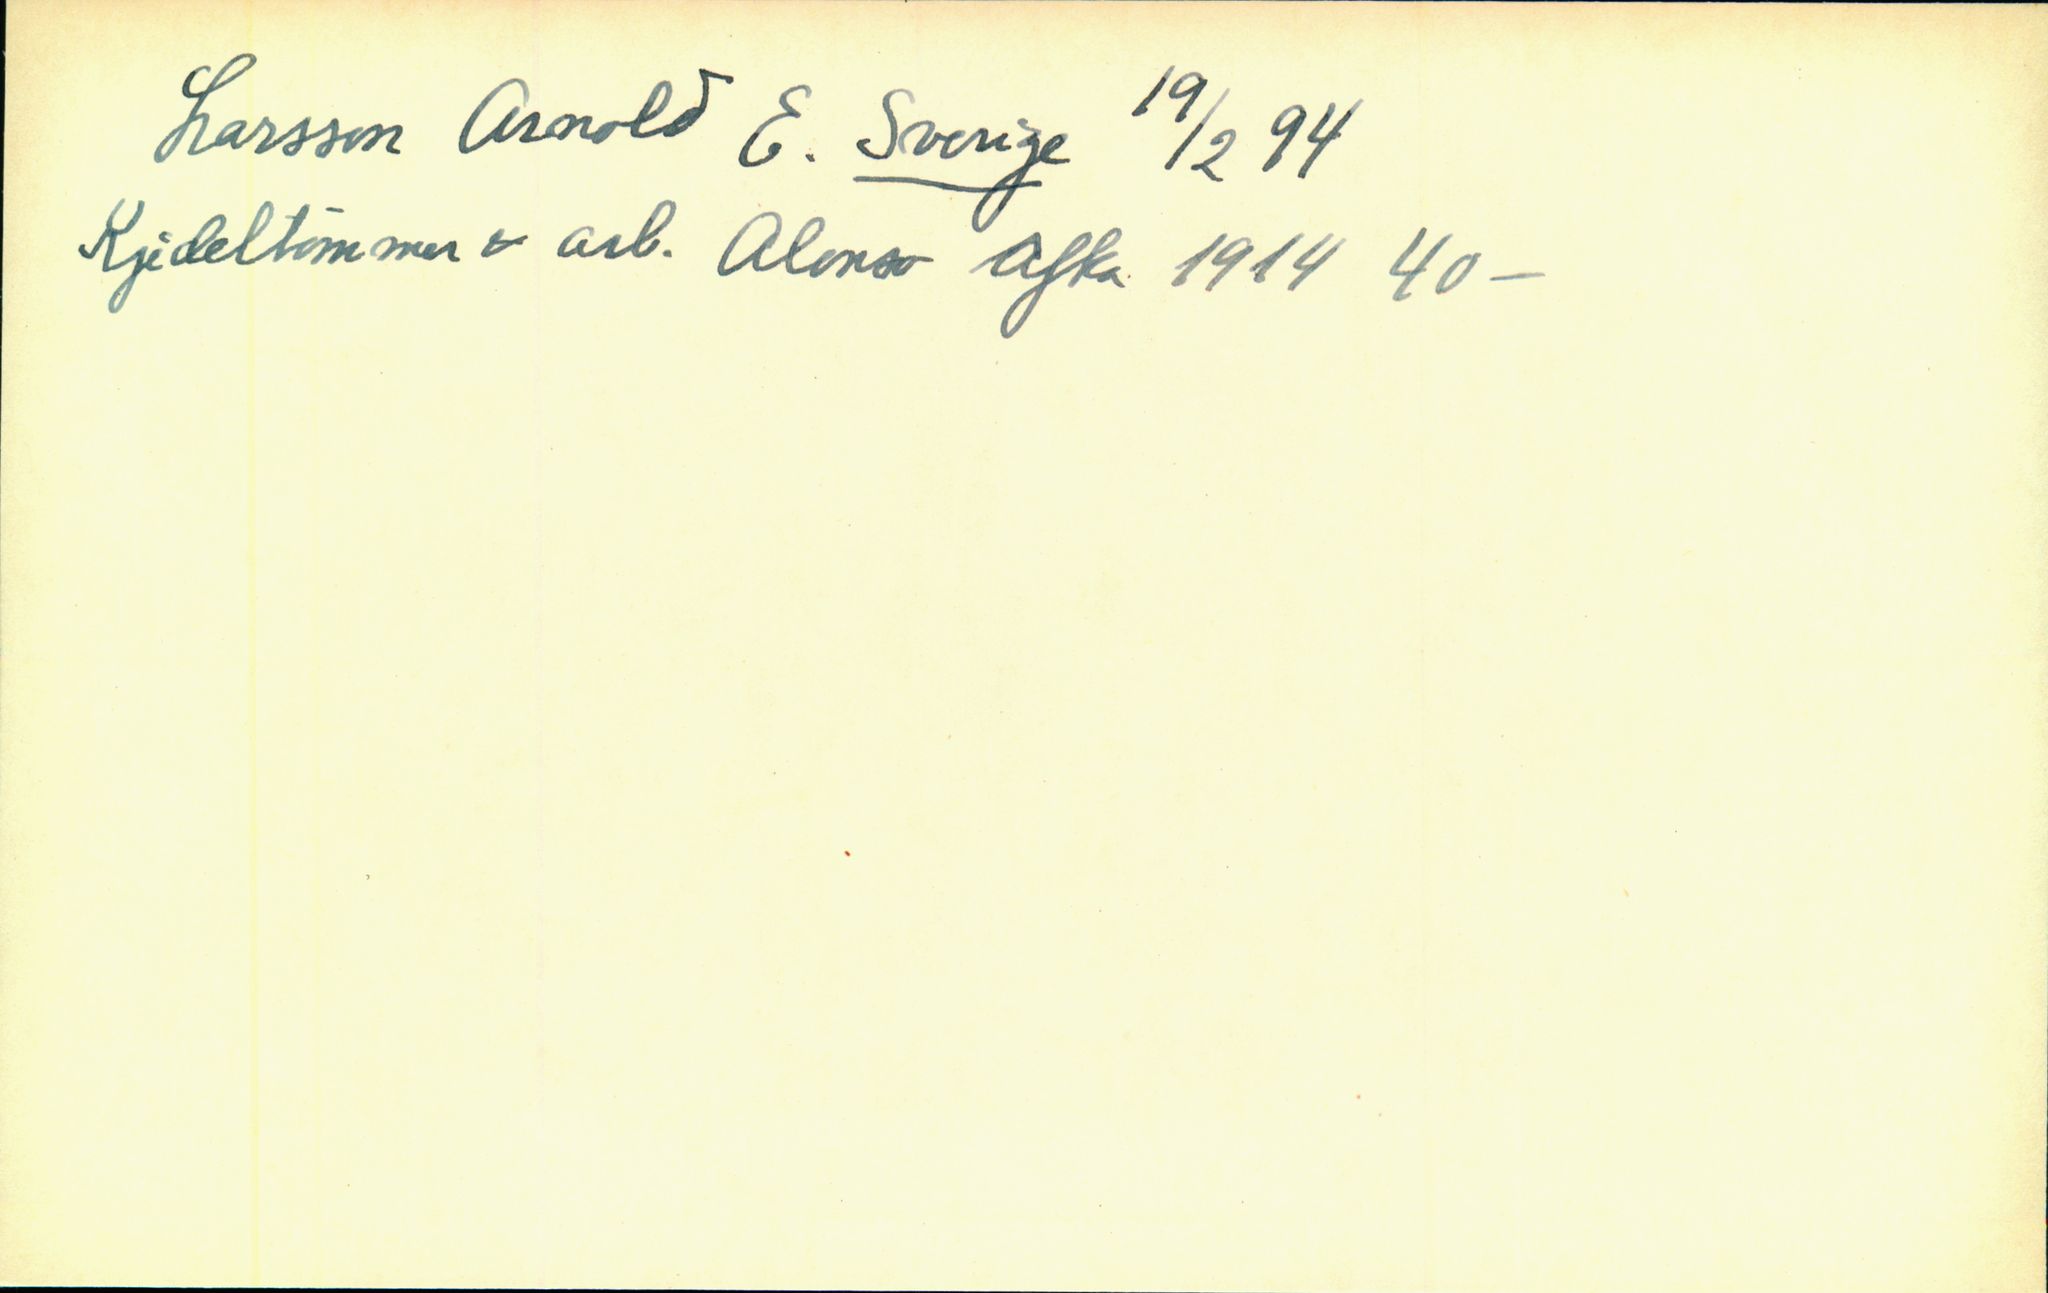 Larsson Arnold E. Sverige 19/2 94
Kjedeltømmer & arb. Alonso Afka 1914 40 –